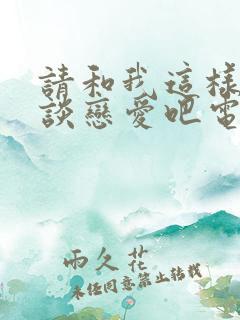 請和我這樣
談戀愛吧電
雨久花
未經同意禁止轉載